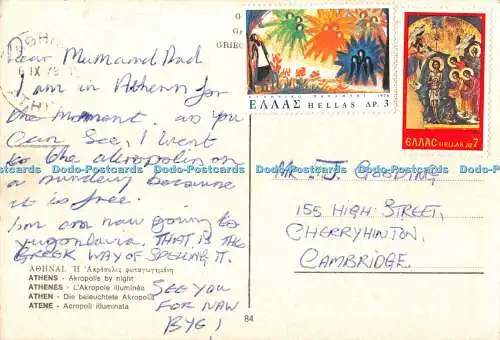 Dear Mum and Dad
I am in Athens for
the moment. as you
can see, I went
to the akropolis on
a sunday because
it is free.
I'm am now going to
yugoslavia. THAT IS THE
GREEK WAY OF SPELLING IT.
SEE YOU
FOR NAW
BYE!
ΑΘΗΝΑΙ. Ἡ Ἀκρόπολις φωταγωγημένη
ATHENS - Akropolis by night
ATHENES - L'Akropole illuminée
ATHEN - Die beleuchtete Akropolis
ATENE - Acropoli illuminata
84
G
GR
GRIEC
IX 78
1978
ΕΛΛΑΣ HELLAS ΔΡ. 3
ΕΛΛΑΣ HELLAS ΔΡ 7
MR. J. GOODING
155 HIGH STREET,
CHERRYHINTON,
CAMBRIDGE.
Postcards DadsPostcards DadsPostcards DadsPostcards DadsPostcards